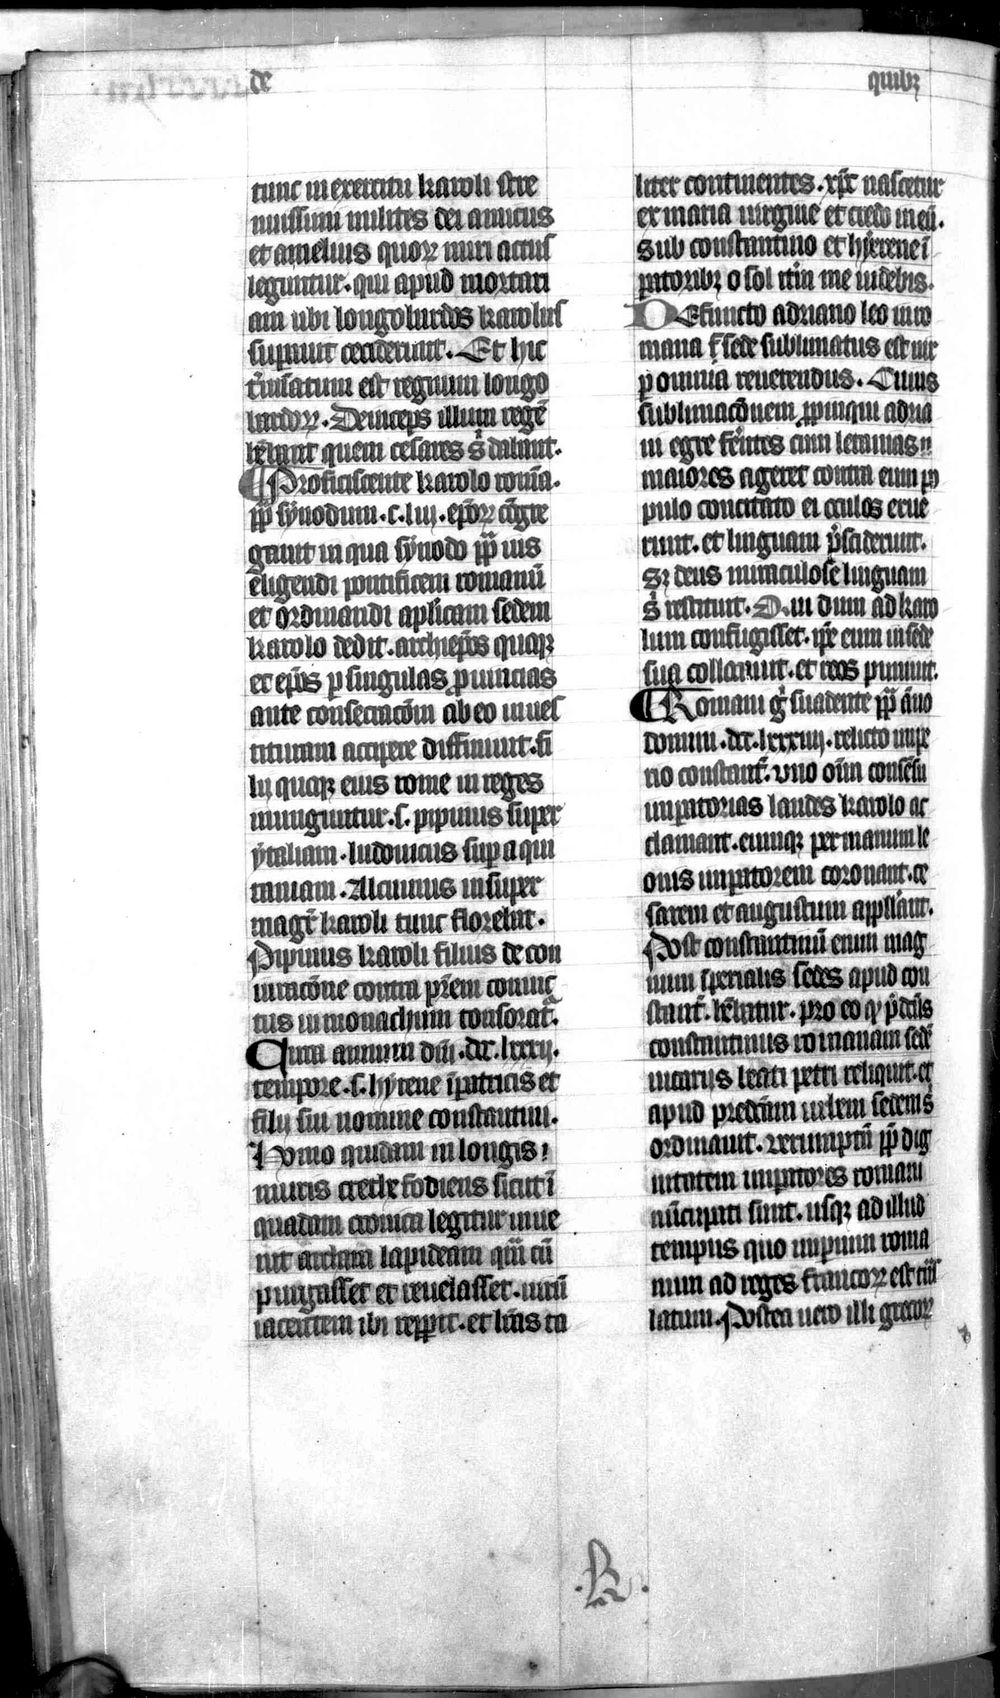 de
quibꝫ
tunc in exercitu karoli stre
nuissimi milites dei amicus
et amelius quoꝝ miri actus
leguntur. qui apud mortari
am ubi longobardos karolus
suꝑauit ceciderunt. Et hic
t̾mīatum est regnum longo
bardoꝝ. Deinceps illum regē
hēbant quem cesares s̄ dabant.
¶ Proficiscente karolo romā.
pp̄ synodum .c.liii. ep̄oꝝ cōgre
gauit in qua synodo pp̄ ius
eligendi pontificem romanū
et ordinandi apl̄icam sedem
karolo dedit. archiep̄os quoqꝫ
et ep̄os ꝑ singulas ꝓuincias
ante consecracōm ab eo inues
tituram accipere diffiniuit. fi
lij quoqꝫ eius rome in reges
inunguntur .s. pipinus super
ytaliam. ludouicus suꝑ aqui
taniam. Alcuinus insuper
magr̄ karoli tunc florebat.
Pipinus karoli filius de con
iuracōne contra pr̄em conuic
tus in monachum tonsorat᷑.
Circa annum dn̄i .dcc.lxxxij.
tempore .s. hyrene īperatricis et
filij sui nomine constantini.
Homo quidam in longis
muris crethe fodiens sicut ī
quadam cronica legitur inue
nit archam lapideam quā cū
ꝑpurgasset et reuelasset. uirū
iacentem ibi repperit. et lr̄as ta
liter continentes. xp̄c nascetur
ex maria uirgine et credo in eū.
Sub constantino et hyrene ī
ꝑatoribꝫ o sol itm̄ me uidebis.
Defuncto adriano leo in ro
mana s̄ sede sublimatus est uir
ꝑ omnia reuerendus. Cuius
sublimacōnem ꝓpinqui adria
ni egre ferentes cum letanias
maiores ageret contra eum po
pulo concitato ei oculos erue
runt. et linguam p̄sciderunt.
Sꝫ deus miraculose linguam
s̄ restituit. Qui dum ad karo
lum confugisset. ip̄e eum in sede
sua collocauit. et reos puniuit.
¶ Romani g̊ suadente pp̄ āno
domini .dcc.lxxxiiij. relicto imꝑe
rio constant̄. vno oīm consēsu
imꝑatorias laudes karolo ac
clamant. eumqꝫ per manum le
onis imꝑatorem coronant. ce
sarem et augustum appellant.
Post constantinū enim mag
num īperialis sedes apud con
stant̄. hēbatur. pro eo qꝫ p̄dcūs
constantinus romanam sedē
uicarijs beati petri reliquit. et
apud predcām urbem sedem s̄
ordinauit. Verumptn̄ pp̄ dig
nitatem imꝑatores romani
nūcupati sunt. usqꝫ ad illud
tempus quo imꝑium roma
num ad reges francoꝝ est trās
latum. Postea uero illi grecoꝝ
.R.